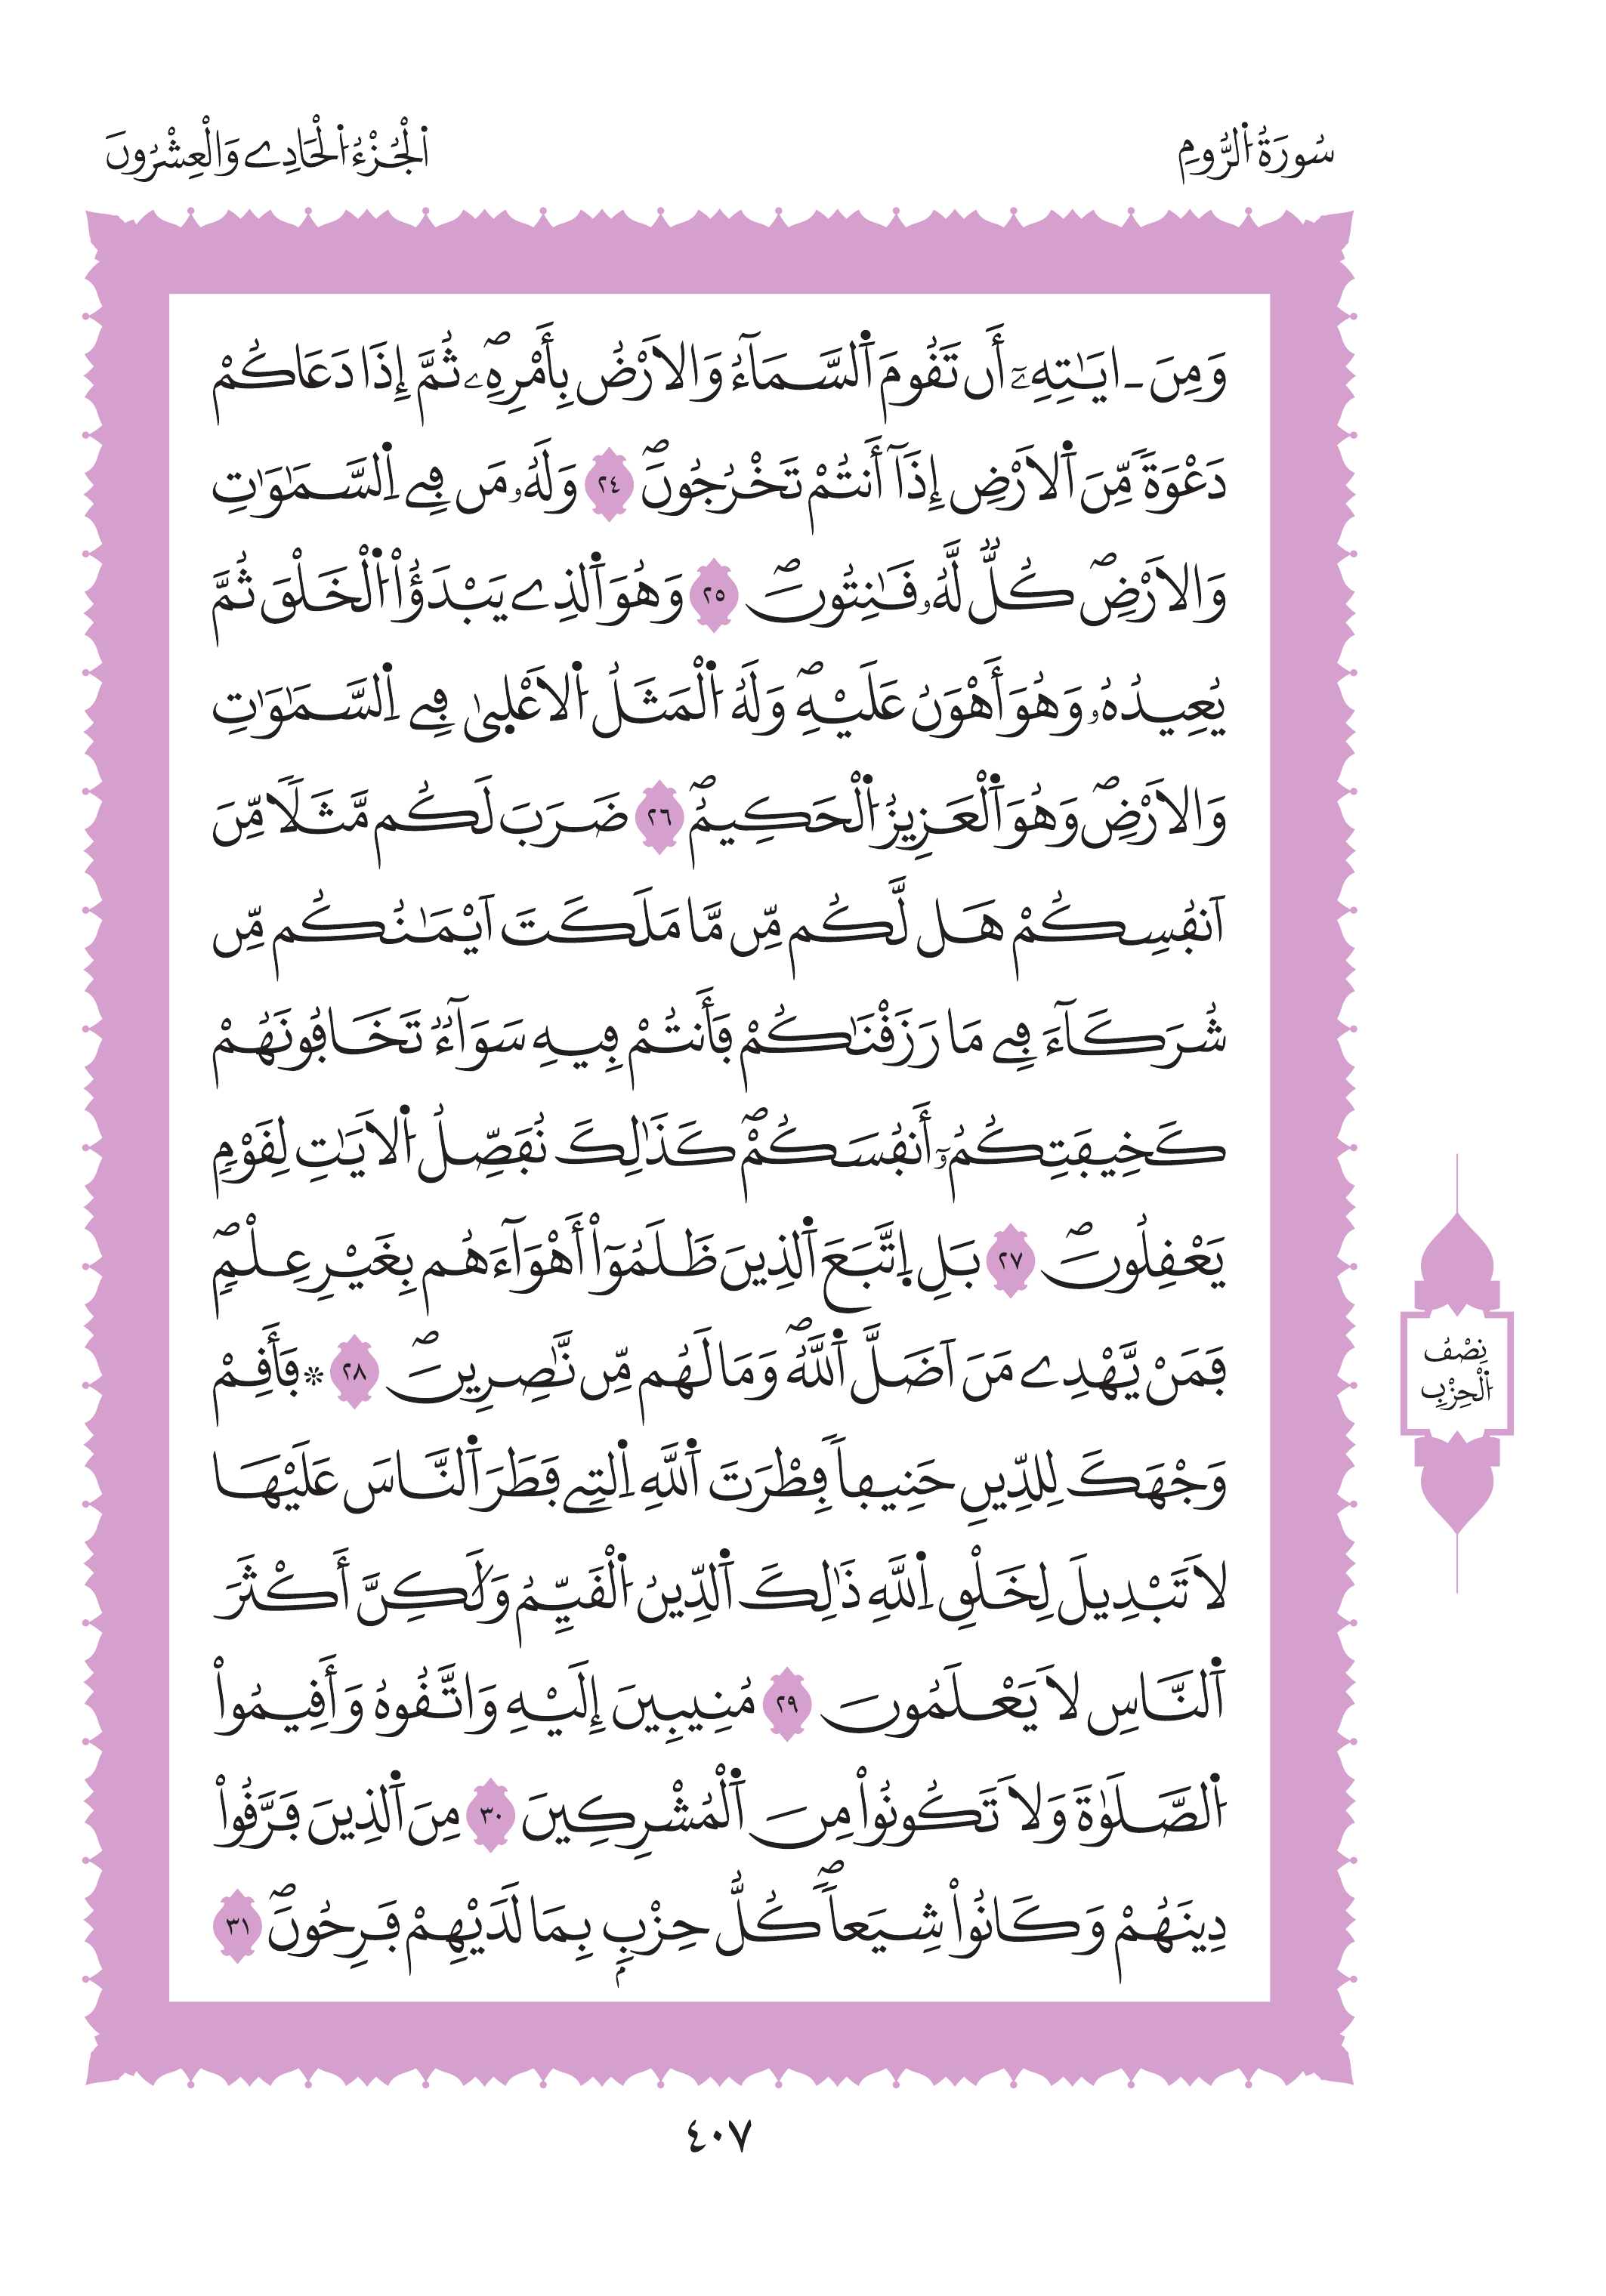 سُورَةُ اُ۬لرُّومِ
اَ۬لْجُزْءُ اُ۬لْحَادِے وَالْعِشْرُونَ
وَمِنَ ـ ايَٰتِهِۦٓ أَن تَقُومَ اَ۬لسَّمَآءُ وَالَارْضُ بِأَمْرِهِۦۖ ثُمَّ إِذَا دَعَاكُمْ
دَعْوَةٗ مِّنَ اَ۬لَارْضِ إِذَآ أَنتُمْ تَخْرُجُونَۖ ٢٤ وَلَهُۥ مَن فِے اِ۬لسَّمَٰوَٰتِ
وَالَارْضِۖ كُلّٞ لَّهُۥ قَٰنِتُونَۖ ٢٥ وَهُوَ اَ۬لذِے يَبْدَؤُاْ اُ۬لْخَلْقَ ثُمَّ
يُعِيدُهُۥ وَهُوَ أَهْوَنُ عَلَيْهِۖ وَلَهُ اُ۬لْمَثَلُ اُ۬لَاعْلۭيٰ فِے اِ۬لسَّمَٰوَٰتِ
وَالَارْضِۖ وَهُوَ اَ۬لْعَزِيزُ اُ۬لْحَكِيمُۖ ٢٦ ضَرَبَ لَكُم مَّثَلٗا مِّنَ
اَنفُسِكُمْ هَل لَّكُم مِّن مَّا مَلَكَتَ اَيْمَٰنُكُم مِّن
شُرَكَآءَ فِے مَا رَزَقْنَٰكُمْ فَأَنتُمْ فِيهِ سَوَآءٞ تَخَافُونَهُمْ
كَخِيفَتِكُمُۥٓ أَنفُسَكُمْۖ كَذَٰلِكَ نُفَصِّلُ اُ۬لَايَٰتِ لِقَوْمٖ
يَعْقِلُونَۖ ٢٧ بَلِ اِ۪تَّبَعَ اَ۬لذِينَ ظَلَمُوٓاْ أَهْوَآءَهُم بِغَيْرِ عِلْمٖۖ
فَمَنْ يَّهْدِے مَنَ اَضَلَّ اَ۬للَّهُۖ وَمَا لَهُم مِّن نَّٰصِرِينَۖ ٢٨ ۞ فَأَقِمْ
وَجْهَكَ لِلدِّينِ حَنِيفاٗ فِطْرَتَ اَ۬للَّهِ اِ۬لتِے فَطَرَ اَ۬لنَّاسَ عَلَيْهَا
لَا تَبْدِيلَ لِخَلْقِ اِ۬للَّهِ ذَٰلِكَ اَ۬لدِّينُ اُ۬لْقَيِّمُ وَلَٰكِنَّ أَكْثَرَ
اَ۬لنَّاسِ لَا يَعْلَمُونَ ٢٩ مُنِيبِينَ إِلَيْهِ وَاتَّقُوهُ وَأَقِيمُواْ
اُ۬لصَّلَوٰةَ وَلَا تَكُونُواْ مِنَ اَ۬لْمُشْرِكِينَ ٣٠ مِنَ اَ۬لذِينَ فَرَّقُواْ
دِينَهُمْ وَكَانُواْ شِيَعاٗۖ كُلُّ حِزْبِۢ بِمَا لَدَيْهِمْ فَرِحُونَۖ ٣١
نِصْفُ
اُ۬لْحِزْبِ
٤٠٧